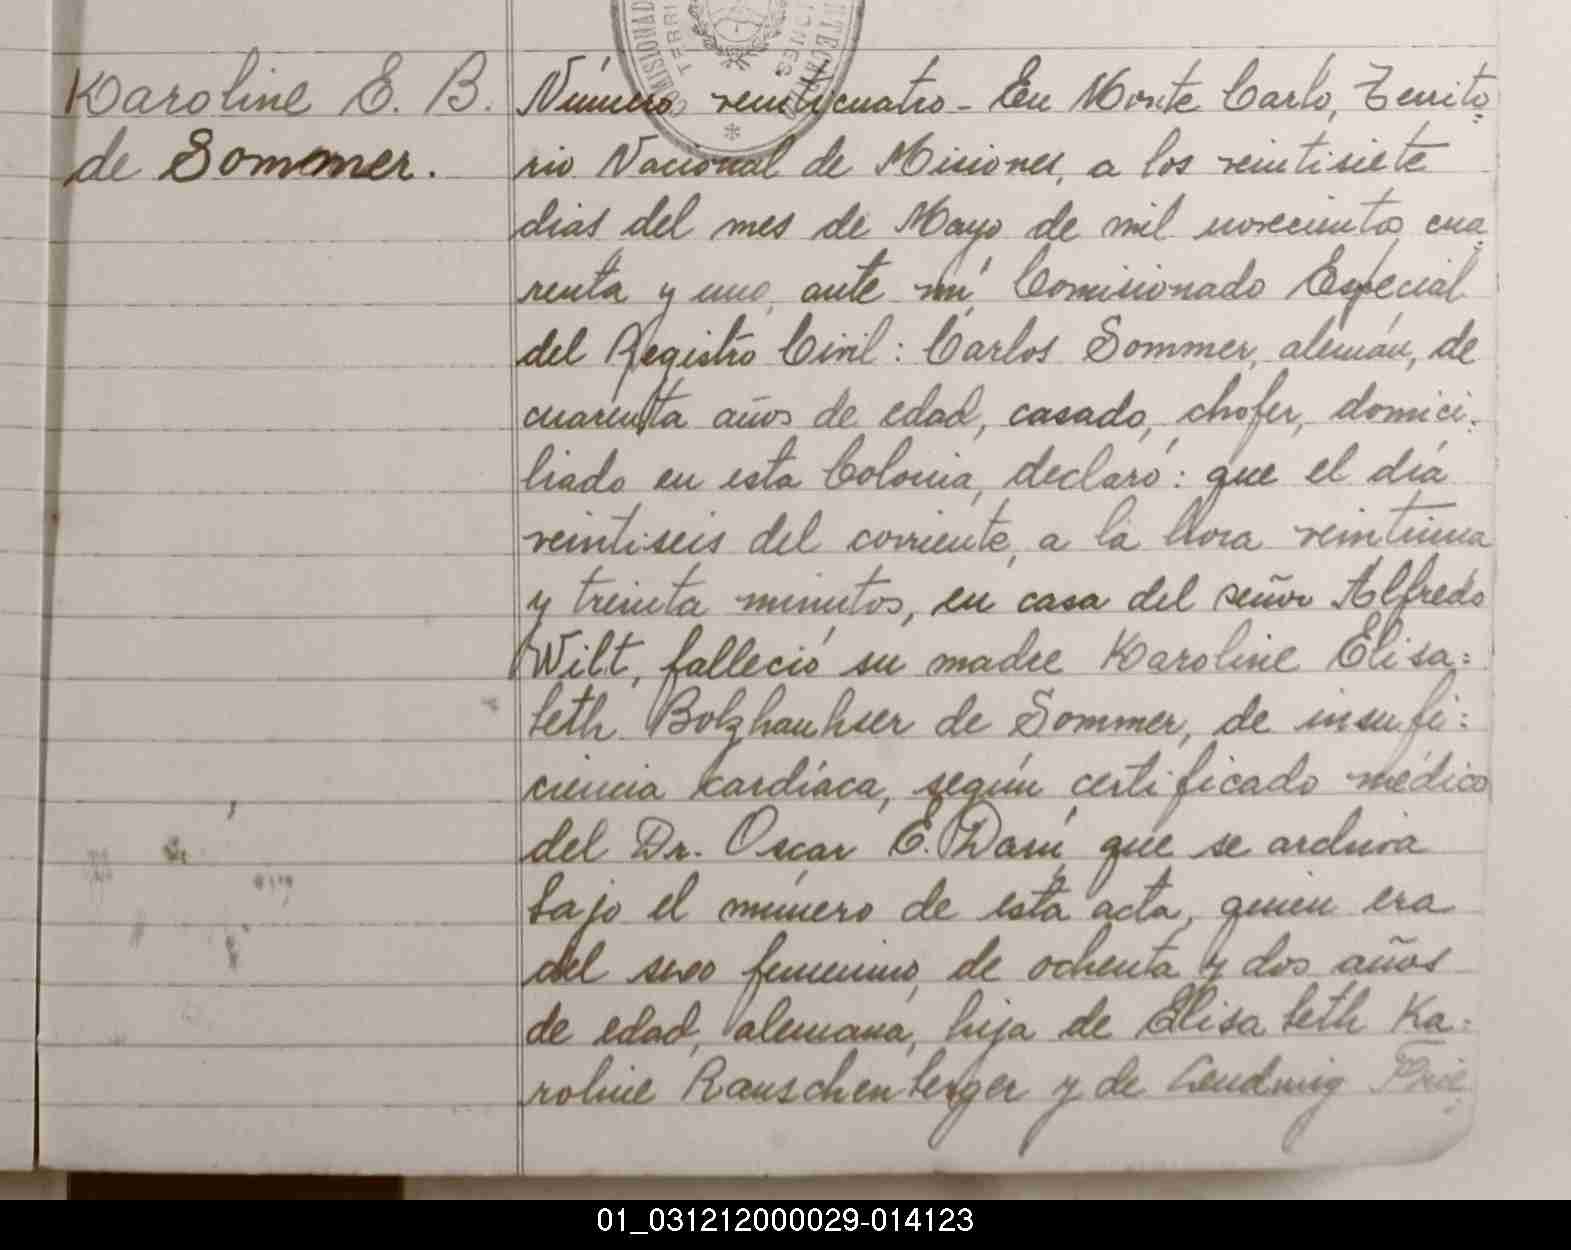 Karoline E. B.
de Sommer.
Número veinticuatro - En Monte Carlo, Territo=
rio Nacional de Misiones, a los veintisiete
dias del mes de Mayo de mil novecientos cua=
renta y uno, ante mí, Comisionado Especial
del Registro Civil: Carlos Sommer, alemán, de
cuarenta años de edad, casado, chofer, domici=
liado en esta Colonia, declaró: que el día
veintiseis del corriente, a la hora veintiuna
y treinta minutos, en casa del señor Alfredo
Wilt, falleció su madre Karoline Elisa=
beth Bolzhauhser de Sommer, de insufi=
ciencia kardíaca, según certificado médico
del Dr. Oscar E. que se archiva
bajo el número de esta acta, quien era
del sexo femenino, de ochenta y dos años
de edad, alemana, hija de Elisabeth Ka=
roline Rauschenberger y de Frie=
01_031212000029-014123